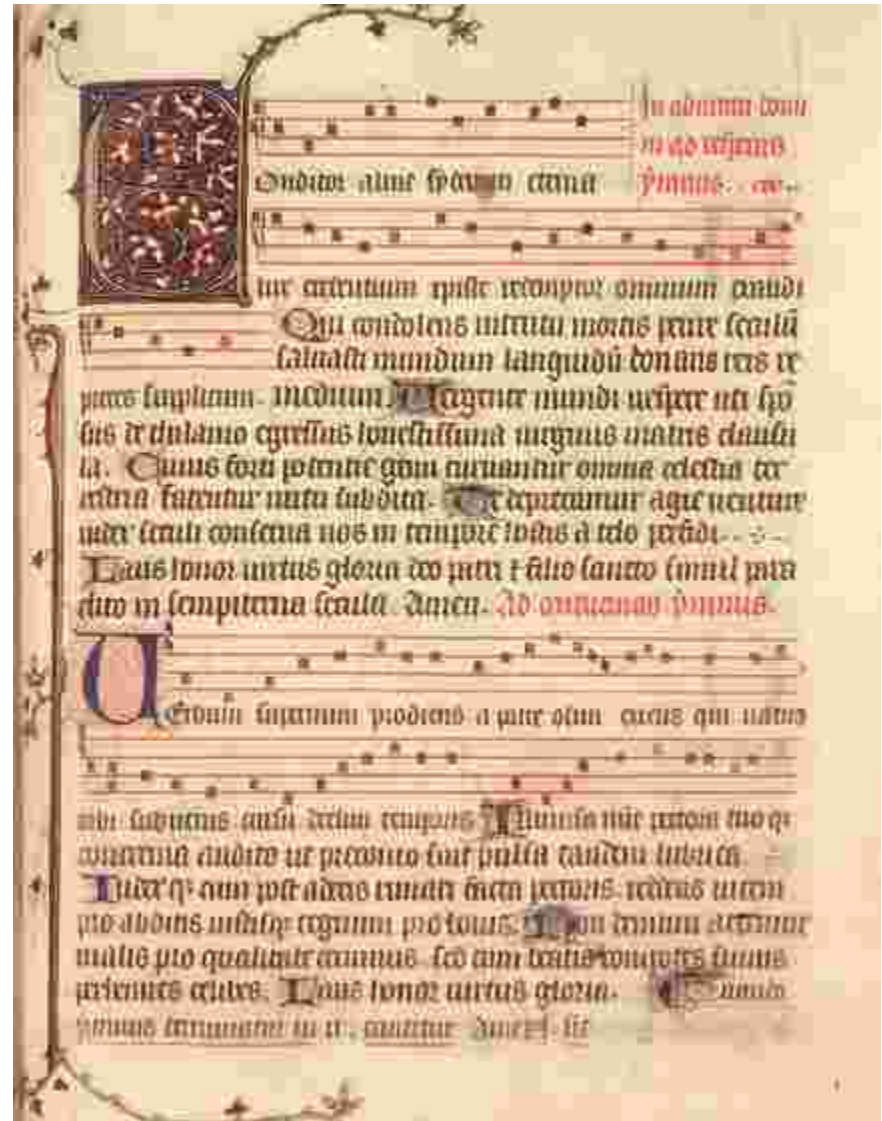 In adventu domi
ni ad vesperas
Onditor alme siderum eterna
ymnus.
lux credentium christe redemptor omnium exaudi
Qui condolens interitu mortis perire seculū
salvasti mundum languidū donans reis re
preces supplicum. medium. Vergente mundi vespere uti spō
sus de thalamo egressus honestissima virginis matris clausu
la. Cuius forti potentie genu curvantur omnia celestia ter
restria fatentur nutu subdita. Te deprecamur agie venture
iudex seculi conserva nos in tempore hostis a telo perfidi
Laus honor virtus gloria deo patri et filio sancto simul para
clito in sempiterna secula. Amen. ymnus.
Erbum supernum prodiens a patre olim exiens qui natus
orbi subvenis cursu declivi temporis Illumina nunc pectora tuo qȝ
concrema audito ut preconio sint pulsa tandem lubrica
Iudex qȝ cum post aderis rimari facta pectoris. reddens vicem
pro abditis iustisqȝ regnum pro bonis. Non demum artemur
malis pro qualitate criminis. sed cum beatis compotes simus
perhennes celibes. Laus honor virtus gloria.